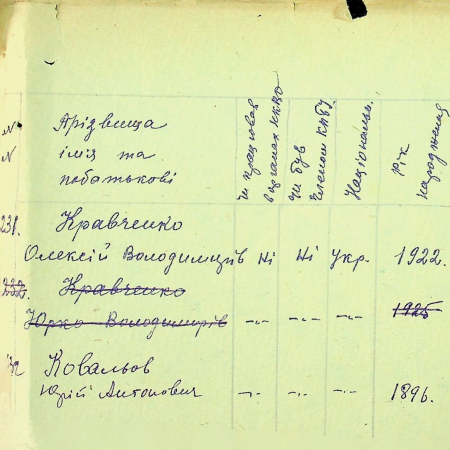 N
N
Прізвища
імія та
побатькові
чи працював
в органах НКВД
чи був
членом КПбУ
Національн.
Рік
народження
231. Кравченко
Олексій Володимирів Ні Ні укр. 1922.
232. Кравченко
Юрко Володимирів -"- -"- -"- 1925
Ковальов
Юрій Антонович -"- -"- -"- 1896.